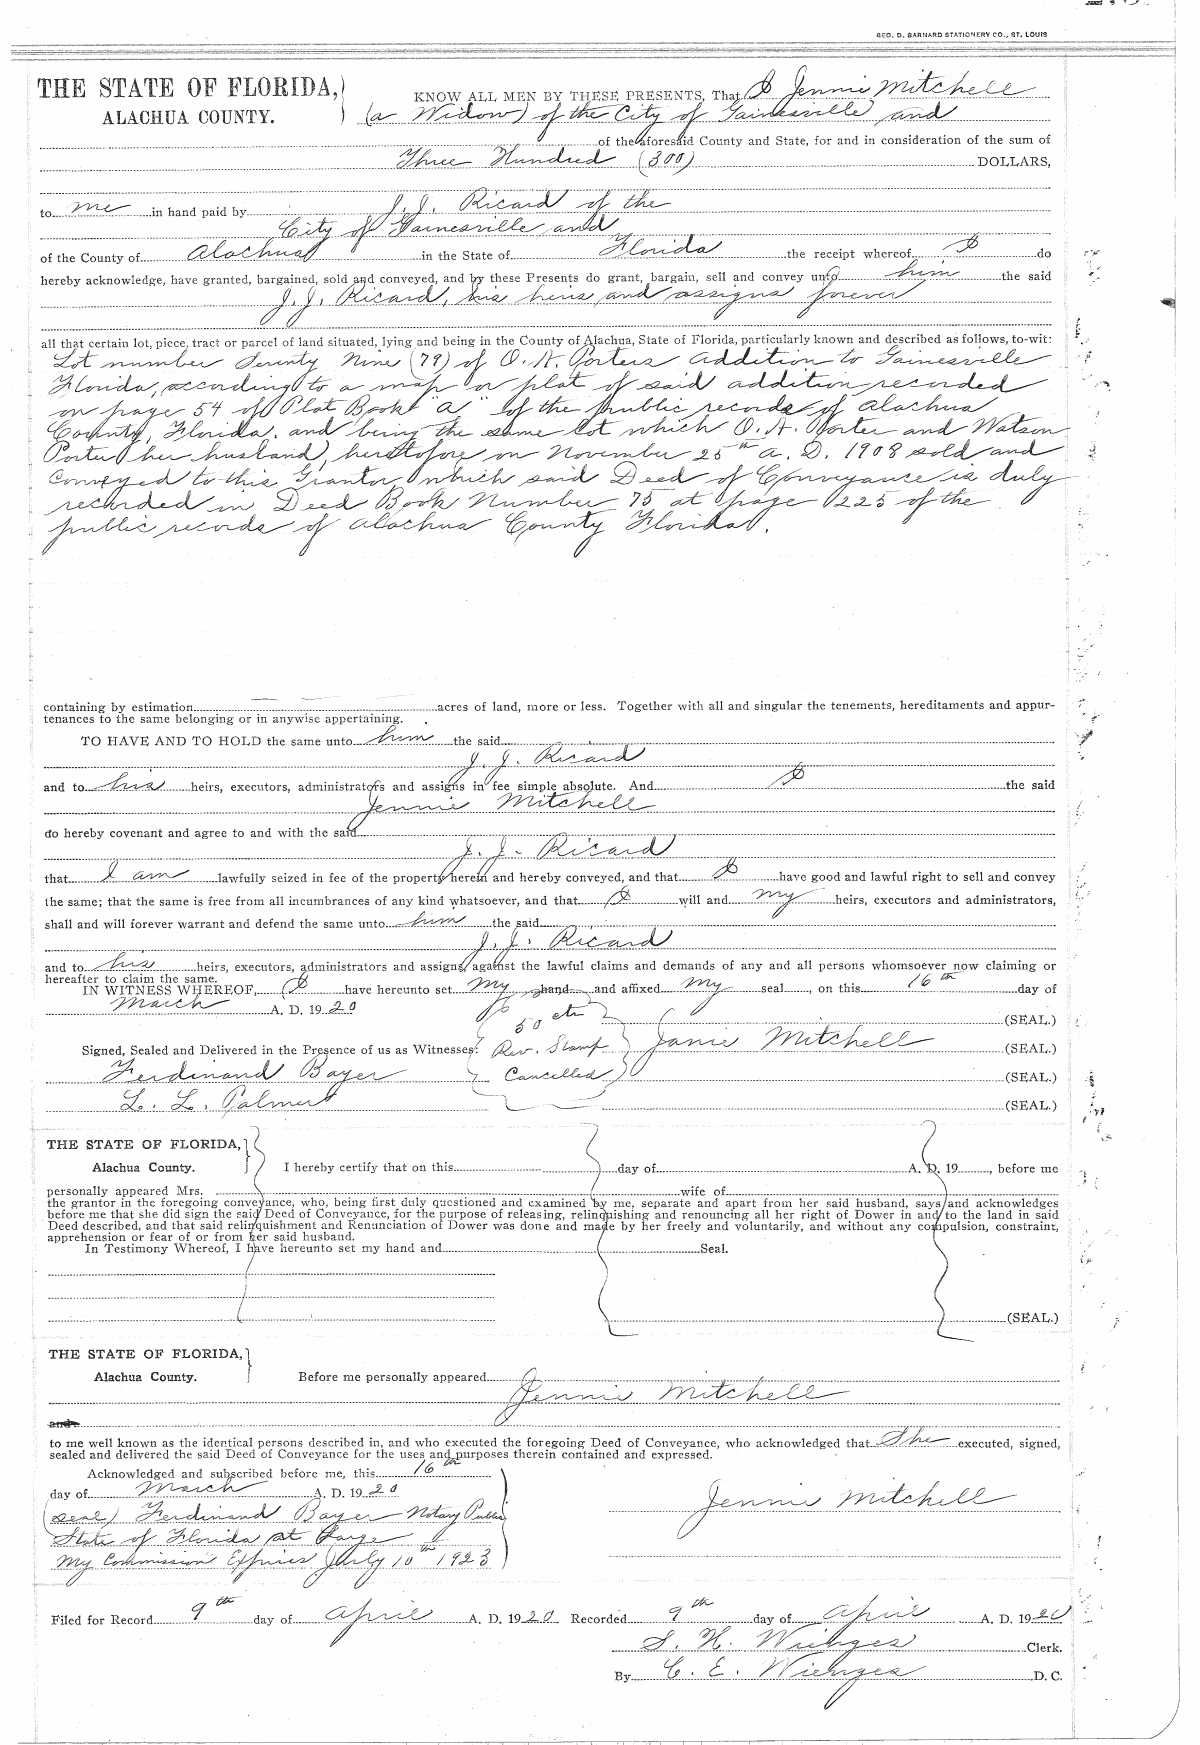 GEO. D. BARNARD STATIONERY CO., ST. LOUIS
THE STATE OF FLORIDA,
ALACHUA COUNTY.
KNOW ALL MEN BY THESE PRESENTS, That I Jennie Mitchell
(a Widow) of the City of Gainesville and
of the aforesaid County and State, for and in consideration of the sum of
Three Hundred (300) DOLLARS,
to me in hand paid by J. J. Ricard of the
City of Gainesville and
of the County of Alachua in the State of Florida the receipt whereof I do
hereby acknowledge, have granted, bargained, sold and conveyed, and by these Presents do grant, bargain, sell and convey unto him the said
J. J. Ricard, his heirs and assigns forever
all that certain lot, piece, tract or parcel of land situated, lying and being in the County of Alachua, State of Florida, particularly known and described as follows, to-wit:
Lot number Seventy Nine (79) of O. A. Porters Addition to Gainesville
Florida, according to a map or plat of said addition recorded
on page 54 of Plat Book "A" of the public records of Alachua
County, Florida. and being the same lot which O. A. Porter and Watson
Porter (her husband), heretofore on November 25th A. D. 1908 sold and
conveyed to this Grantor, which said Deed of Conveyance is duly
recorded in Deed Book Number 75 at page 225 of the
public records of Alachua County Florida.
containing by estimation acres of land, more or less. Together with all and singular the tenements, hereditaments and appur-
tenances to the same belonging or in anywise appertaining.
TO HAVE AND TO HOLD the same unto him the said
J. J. Ricard
and to his heirs, executors, administrators and assigns in fee simple absolute. And I the said
Jennie Mitchell
do hereby covenant and agree to and with the said
J. J. Ricard
that I am lawfully seized in fee of the property herein and hereby conveyed, and that I have good and lawful right to sell and convey
the same; that the same is free from all incumbrances of any kind whatsoever, and that I will and my heirs, executors and administrators,
shall and will forever warrant and defend the same unto him the said
J. J. Ricard
and to his heirs, executors, administrators and assigns, against the lawful claims and demands of any and all persons whomsoever now claiming or
hereafter to claim the same.
IN WITNESS WHEREOF, I have hereunto set my hand and affixed my seal, on this 16th day of
March A. D. 1920
50 cts (SEAL.)
Signed, Sealed and Delivered in the Presence of us as Witnesses: Rev. Stamp Janie Mitchell (SEAL.)
Ferdinand Bayer Cancelled (SEAL.)
L. L. Palmer (SEAL.)
THE STATE OF FLORIDA,
Alachua County. I hereby certify that on this day of A. D. 19 , before me
personally appeared Mrs. wife of
the grantor in the foregoing conveyance, who, being first duly questioned and examined by me, separate and apart from her said husband, says and acknowledges
before me that she did sign the said Deed of Conveyance, for the purpose of releasing, relinquishing and renouncing all her right of Dower in and to the land in said
Deed described, and that said relinquishment and Renunciation of Dower was done and made by her freely and voluntarily, and without any compulsion, constraint,
apprehension or fear of or from her said husband.
In Testimony Whereof, I have hereunto set my hand and Seal.
(SEAL.)
THE STATE OF FLORIDA,
Alachua County. Before me personally appeared
Jennie Mitchell
and
to me well known as the identical persons described in, and who executed the foregoing Deed of Conveyance, who acknowledged that She executed, signed,
sealed and delivered the said Deed of Conveyance for the uses and purposes therein contained and expressed.
Acknowledged and subscribed before me, this 16th
day of March A. D. 1920
Jennie Mitchell
(seal) Ferdinand Bayer Notary Public
State of Florida at Large
My Commission Expires July 10th 1923
Filed for Record 9th day of April A. D. 1920 Recorded 9th day of April A. D. 1920
S. H. Wienges Clerk.
By C. E. Wienges D. C.